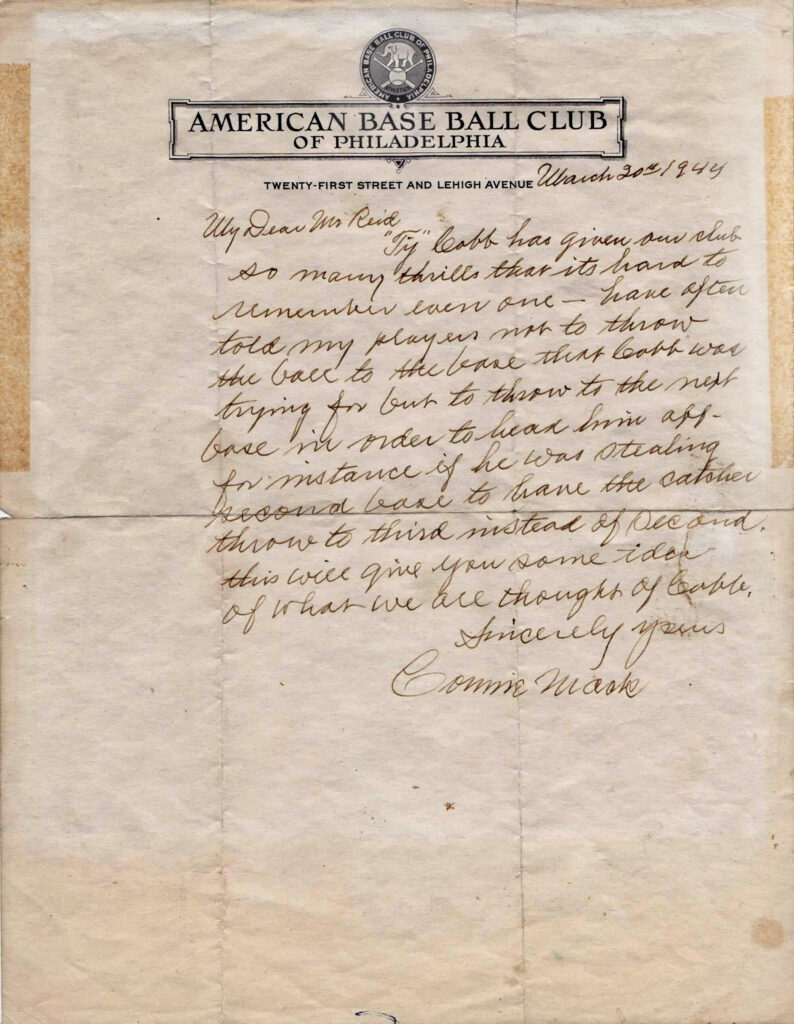 AMERICAN BASE BALL CLUB OF PHILADELPHIA
ATHLETICS
AMERICAN BASE BALL CLUB
OF PHILADELPHIA
TWENTY-FIRST STREET AND LEHIGH AVENUE March 20th 1944
My Dear Mr Reid
"Ty" Cobb has given our club
so many thrills that its hard to
remember even one — have often
told my players not to throw
the ball to the base that Cobb was
trying for but to throw to the next
base in order to head him off-
for instance if he was stealing
second base to have the catcher
throw to third instead of second.
this will give you some idea
of what we all thought of Cobb.
Sincerely yours
Connie Mack